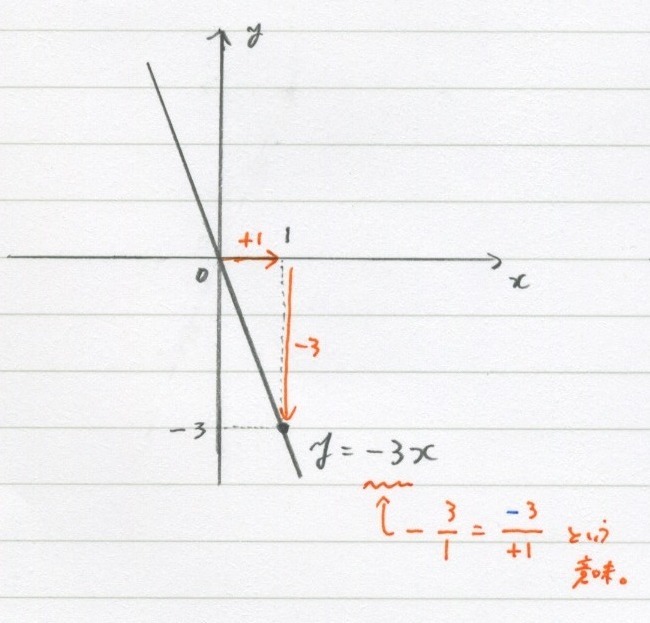 y
+1 1
0
x
-3
-3
y = -3x
- 3/1 = -3/+1 という
意味。